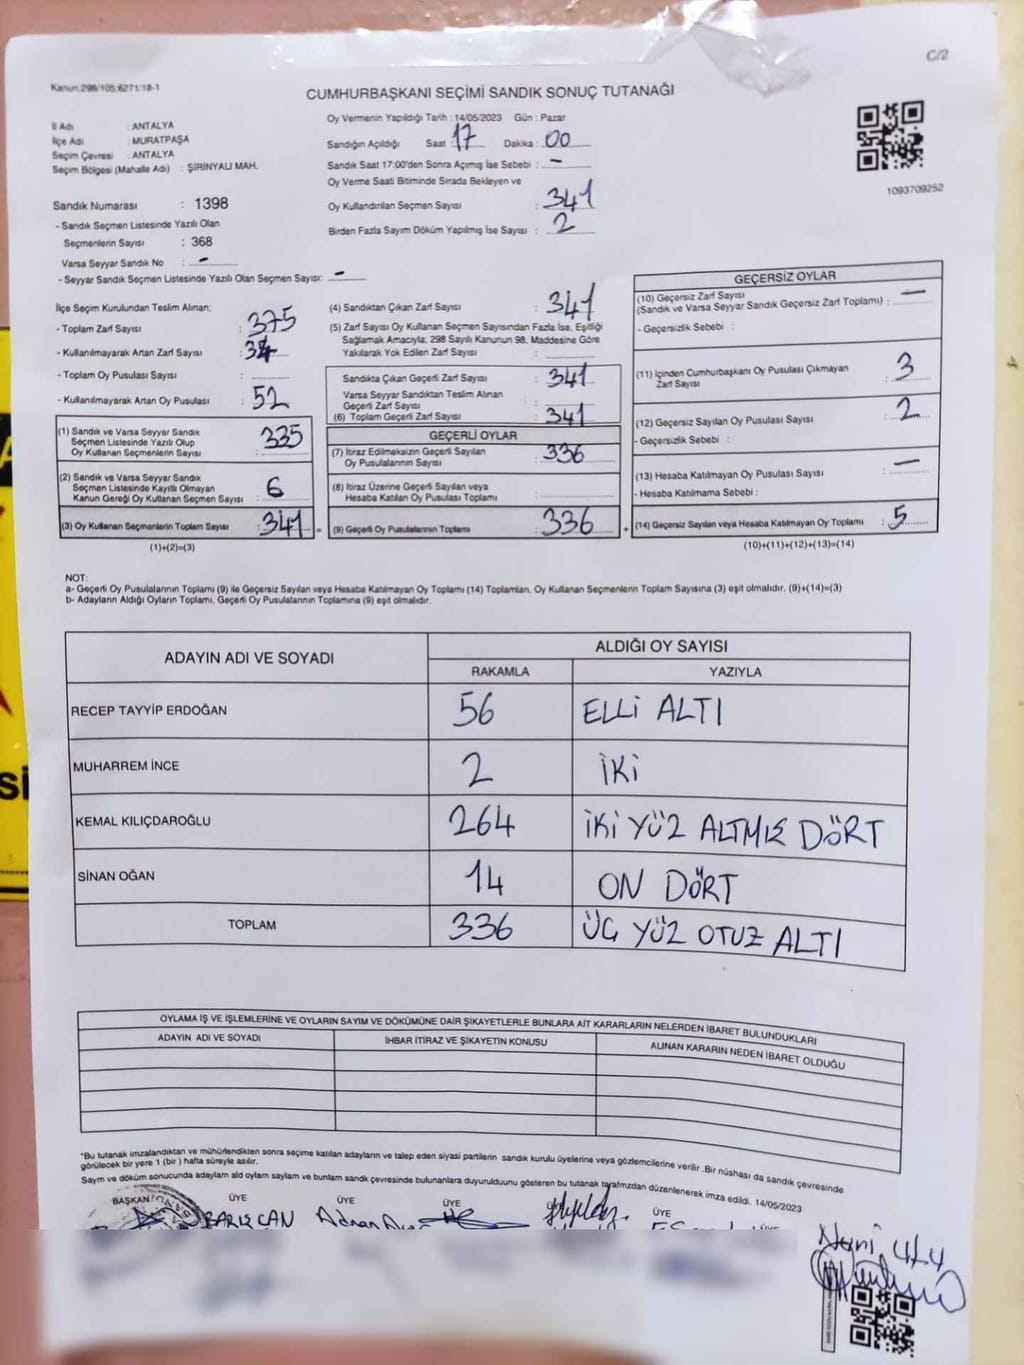 C/2
Kanun:298/105;6271/18-1
CUMHURBAŞKANI SEÇİMİ SANDIK SONUÇ TUTANAĞI
İl Adı : ANTALYA
İlçe Adı : MURATPAŞA
Seçim Çevresi : ANTALYA
Seçim Bölgesi (Mahalle Adı) : ŞİRİNYALI MAH.
Oy Vermenin Yapıldığı Tarih : 14/05/2023 Gün : Pazar
Sandığın Açıldığı Saat : 17 Dakika : 00
Sandık Saat 17:00'den Sonra Açımış İse Sebebi : -
Oy Verme Saati Bitiminde Sırada Bekleyen ve
Oy Kullandırılan Seçmen Sayısı : 341
Birden Fazla Sayım Döküm Yapılmış İse Sayısı : 2
1093709252
Sandık Numarası : 1398
- Sandık Seçmen Listesinde Yazılı Olan
Seçmenlerin Sayısı : 368
Varsa Seyyar Sandık No : -
- Seyyar Sandık Seçmen Listesinde Yazılı Olan Seçmen Sayısı: -
İlçe Seçim Kurulundan Teslim Alınan;
- Toplam Zarf Sayısı : 375
- Kullanılmayarak Artan Zarf Sayısı : 34
- Toplam Oy Pusulası Sayısı :
- Kullanılmayarak Artan Oy Pusulası : 52
(1) Sandık ve Varsa Seyyar Sandık
Seçmen Listesinde Yazılı Olup
Oy Kullanan Seçmenlerin Sayısı : 335
(2) Sandık ve Varsa Seyyar Sandık
Seçmen Listesinde Kayıtlı Olmayan
Kanun Gereği Oy Kullanan Seçmen Sayısı : 6
(3) Oy Kullanan Seçmenlerin Toplam Sayısı : 341 =
(1)+(2)=(3)
(4) Sandıktan Çıkan Zarf Sayısı : 341
(5) Zarf Sayısı Oy Kullanan Seçmen Sayısından Fazla İse, Eşitliği
Sağlamak Amacıyla; 298 Sayılı Kanunun 98. Maddesine Göre
Yakılarak Yok Edilen Zarf Sayısı :
Sandıkta Çıkan Geçerli Zarf Sayısı : 341
Varsa Seyyar Sandıktan Teslim Alınan
Geçerli Zarf Sayısı :
(6) Toplam Geçerli Zarf Sayısı : 341
GEÇERLİ OYLAR
(7) İtiraz Edilmeksizin Geçerli Sayılan
Oy Pusulalarının Sayısı : 336
(8) İtiraz Üzerine Geçerli Sayılan veya
Hesaba Katılan Oy Pusulası Toplamı :
(9) Geçerli Oy Pusulalarının Toplamı : 336 +
GEÇERSİZ OYLAR
(10) Geçersiz Zarf Sayısı
(Sandık ve Varsa Seyyar Sandık Geçersiz Zarf Toplamı) : -
- Geçersizlik Sebebi :
(11) İçinden Cumhurbaşkanı Oy Pusulası Çıkmayan
Zarf Sayısı : 3
(12) Geçersiz Sayılan Oy Pusulası Sayısı : 2
- Geçersizlik Sebebi :
(13) Hesaba Katılmayan Oy Pusulası Sayısı : -
- Hesaba Katılmama Sebebi :
(14) Geçersiz Sayılan veya Hesaba Katılmayan Oy Toplamı : 5
(10)+(11)+(12)+(13)=(14)
NOT:
a- Geçerli Oy Pusulalarının Toplamı (9) ile Geçersiz Sayılan veya Hesaba Katılmayan Oy Toplamı (14) Toplamları, Oy Kullanan Seçmenlerin Toplam Sayısına (3) eşit olmalıdır. (9)+(14)=(3)
b- Adayların Aldığı Oyların Toplamı, Geçerli Oy Pusulalarının Toplamına (9) eşit olmalıdır.
ADAYIN ADI VE SOYADI ALDIĞI OY SAYISI
RAKAMLA YAZIYLA
RECEP TAYYİP ERDOĞAN 56 ELLİ ALTI
MUHARREM İNCE 2 İKİ
KEMAL KILIÇDAROĞLU 264 İKİ YÜZ ALTMIŞ DÖRT
SİNAN OĞAN 14 ON DÖRT
TOPLAM 336 ÜÇ YÜZ OTUZ ALTI
OYLAMA İŞ VE İŞLEMLERİNE VE OYLARIN SAYIM VE DÖKÜMÜNE DAİR ŞİKAYETLERLE BUNLARA AİT KARARLARIN NELERDEN İBARET BULUNDUKLARI
ADAYIN ADI VE SOYADI İHBAR İTİRAZ VE ŞİKAYETİN KONUSU ALINAN KARARIN NEDEN İBARET OLDUĞU
*Bu tutanak imzalandıktan ve mühürlendikten sonra seçime katılan adayların ve talep eden siyasi partilerin sandık kurulu üyelerine veya gözlemcilerine verilir .Bir nüshası da sandık çevresinde
görülecek bir yere 1 (bir ) hafta süreyle asılır.
Sayım ve döküm sonucunda adayların aldığı oyların sayısını ve bunların sandık çevresinde bulunanlara duyurulduğunu gösteren bu tutanak tarafımızdan düzenlenerek imza edildi. 14/05/2023
BAŞKAN ÜYE ÜYE ÜYE ÜYE ÜYE
BARIŞCAN Adnan
Nuri